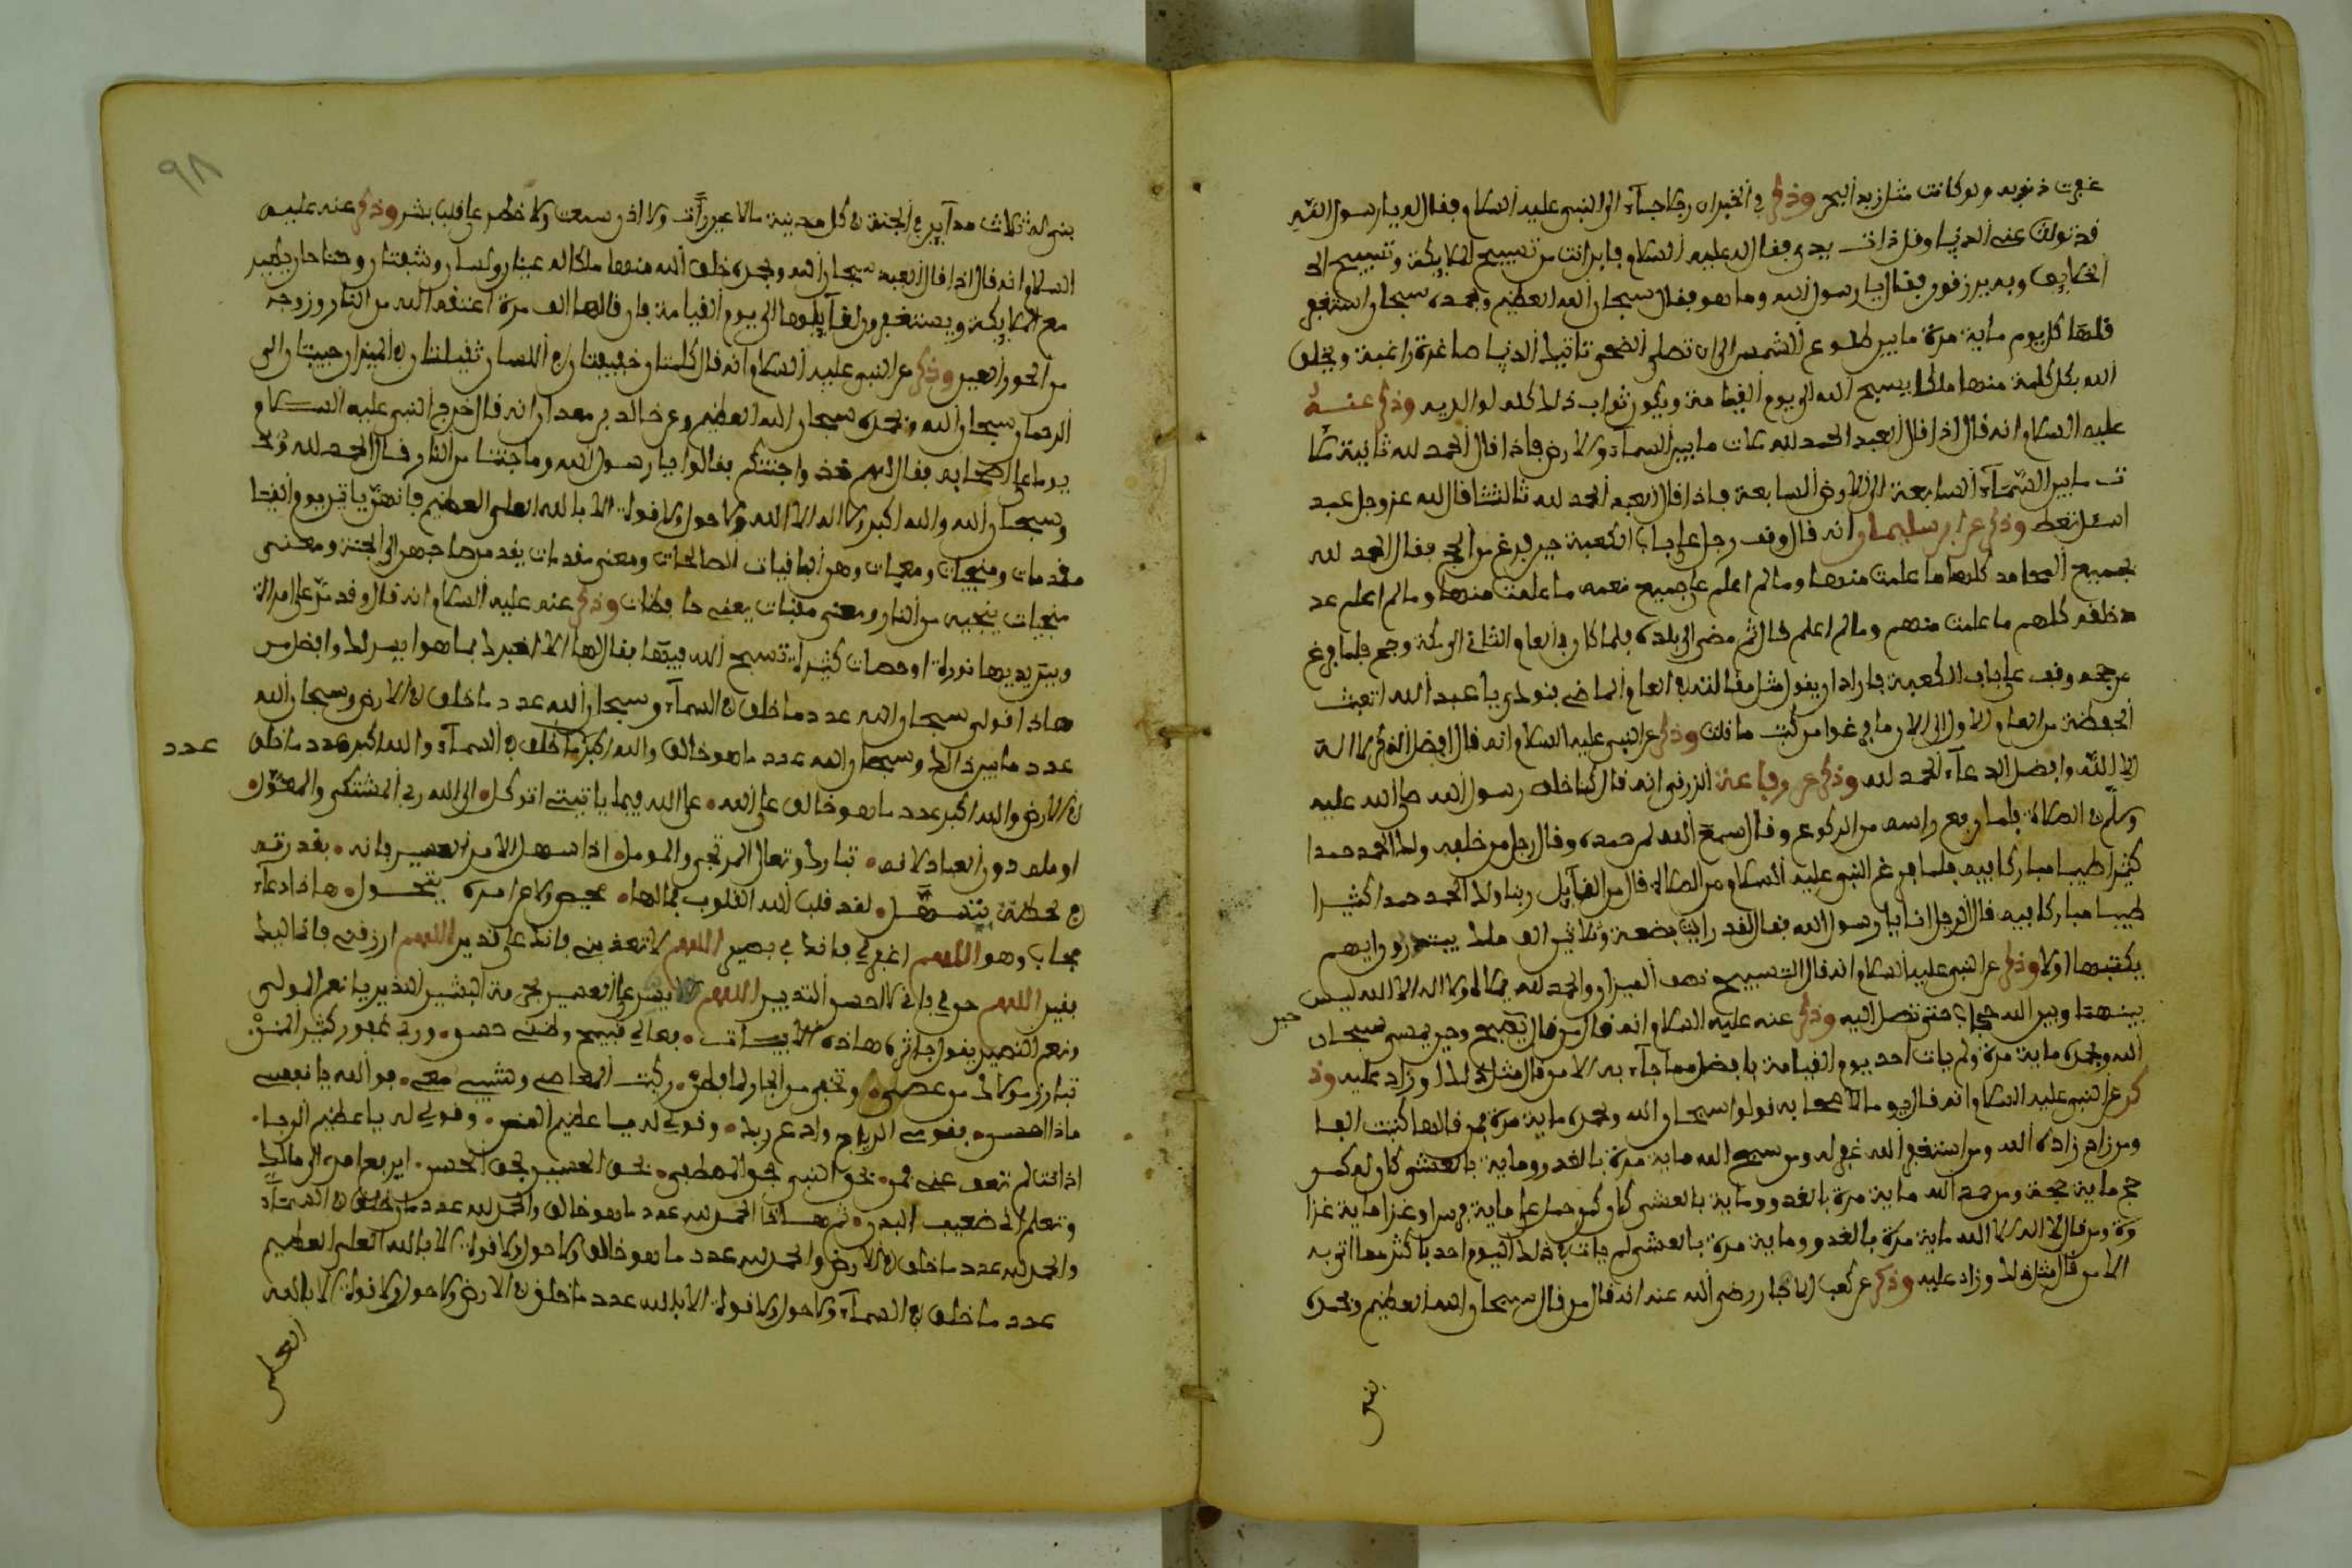 غفرت ذنوبه ولو كانت مثل زبد البحر وذكر في الخبر ان رجلا جاء الى النبي عليه السلام فقال له يا رسول الله
قد تولت عني الدنيا وقل ذات يدي فقال له عليه السلام فاين انت من تسبيح الملايكة وتسبيح
الخلايق وبه يرزقون فقال يا رسول الله وما هو فقال سبحان الله العظيم وبحمده سبحان استغفر
قلها كل يوم ماية مرة ما بين طلوع الشمس الى ان تصلي الضحى تاتيك الدنيا صاغرة راغبة ويخلق
الله بكل كلمة منها ملكا يسبح الله الى يوم القيامة ويكون ثواب ذلك كله لوالديه وذكر عنه
عليه السلام انه قال اذا قال العبد الحمد لله ملات ما بين السماء والارض فاذا قال الحمد لله ثانية ملا
ت ما بين السماء السابعة الى الارض السابعة فاذا قال العبد الحمد لله ثالثا قال الله عز وجل عبد
اسئل تعط وذكر عن ابن سليمان انه قال وقف رجل على باب الكعبة حين فرغ من الحج فقال الحمد لله
بجميع المحامد كلها ما علمت منها وما لم اعلم على جميع نعمه ما علمت منها وما لم اعلم عد
د خلقه كلهم ما علمت منهم وما لم اعلم قال ثم مضى الى بلده فلما كان في العام الثاني الى مكة وحج فلما فرغ
من حجه وقف على باب الكعبة فاراد ان يقول مثل مقالته في العام الماضي فنودي يا عبد الله اتعبت
الحفظة من العام الاول الى الان ما فرغوا من كتب ما قلت وذكر عن النبي عليه السلام انه قال افضل الذكر لا اله
الا الله وافضل الدعاء الحمد لله وذكر عن رفاعة الزرقي انه قال كنا خلف رسول الله صلى الله عليه
وسلم في الصلاة فلما رفع راسه من الركوع وقال سمع الله لمن حمده وقال رجل من خلفه ولك الحمد حمدا
كثيرا طيبا مباركا فيه فلما فرغ النبي عليه السلام من الصلاة قال من القآيل ربنا ولك الحمد حمدا كثيرا
طيبا مباركا فيه قال الرجل انا يا رسول الله فقال لقد رايت بضعة وثلاثين الف ملك يبتدرون ايهم
يكتبها اولا وذكر عن النبي عليه السلام انه قال التسبيح نصف الميزان والحمد لله يملاه ولا اله الا الله ليس
بينهما وبين الله حجاب حتى تصل اليه وذكر عنه عليه السلام انه قال من قال حين يصبح وحين يمسي سبحان
الله وبحمده ماية مرة لم يات احد يوم القيامة بافضل مما جآء به الا من قال مثل ذلك او زاد عليه وذ
كر عن النبي عليه السلام انه قال يوما لاصحابه قولوا سبحان الله وبحمده ماية مرة فمن قالها كتبت الفا
ومن زاد زاده الله ومن استغفر الله غفر له ومن سبح الله ماية مرة بالغدو وماية بالعشي كان له كمن
حج ماية حجة ومن حمد الله ماية مرة بالغدو وماية بالعشي كان كمن حمل على ماية فرس او غزا ماية غزا
وة ومن قال لا اله الا الله ماية مرة بالغدو وماية مرة بالعشي لم يات في ذلك اليوم احد باكثر مما اتى به
الا من قال مثل ذلك وزاد عليه وذكر عن كعب الاحبار رضي الله عنه انه قال من قال سبحان الله العظيم وبحمده
بنى
٩٨
بنى له ثلاث مدآين في الجنة في كل مدينة ما لا عين رات ولا اذن سمعت ولا خطر على قلب بشر وذكر عنه عليه
السلام انه قال اذا قال العبد سبحان الله وبحمده خلق الله منها ملكا له عينان ولسان وشفتان وجناحان يطير
مع الملايكة ويستغفرون لقآيلها الى يوم القيامة فان قالها الف مرة اعتقه الله من النار وزوجه
من الحور العين وذكر عن النبي عليه السلام انه قال كلمتان خفيفتان في اللسان ثقيلتان في الميزان حبيبتان الى
الرحمان سبحان الله وبحمده سبحان الله العظيم وعن خالد بن معدان انه قال خرج النبي عليه السلام
يوما على اصحابه فقال لهم خذوا جنتكم فقالوا يا رسول الله وما جنتنا من النار قال الحمد لله
وسبحان الله والله اكبر ولا اله الا الله ولا حول ولا قوة الا بالله العلي العظيم فانهن ياتين يوم القيا
مقدمات ومنجيات ومعقبات وهن الباقيات الصالحات ومعنى مقدمات يقدمن صاحبهن الى الجنة ومعنى
منجيات ينجيه من النار ومعنى معقبات يعني حافظات وذكر عنه عليه السلام انه قال وقد مر على امراة
وبين يديها نواة او حصات كثيرة تسبح الله فيها فقال لها الا اخبرك بما هو ايسر لك وافضل من
هاذا قولي سبحان الله عدد ما خلق في السماء وسبحان الله عدد ما خلق في الارض وسبحان الله
عدد ما بين ذالك وسبحان الله عدد ما هو خالق والله اكبر ما خلق في السمآء والله اكبر عدد ما خلق
عدد
في الارض والله اكبر عدد ما هو خالق على الله على الله فيما ياتيني اتوكل الى الله ربي المشتكى والمعول
اومله دون العباد لانه تبارك وتعالى المرتجى والمومل اذا سهل الامر العسير فانه بقدرته
في لحظة يتسهل لقد قلب الله القلوب ولا عن امره يتحول هاذا دعآء
مجاب وهو اللهم اغفر لي فانك بي بصير اللهم لا تعذبني فانك علي قدير اللهم ارزقني فانا اليك
فقير اللهم فاني لا احسن التدبير اللهم يسر علي العسير بحرمة البشير النذير يا نعم المولى
ونعم النصير يقول ناثر هاذه الابيات فعالي قبيح وظني حسن وربي غفور كثير المنن
تبارز مولاك من عصى وتخفي من الجار لما فطن ركبت المعاصي وشيبي معي فوالله يا نفس
ماذا حسن فقومي الدياج وادع ربك وقولي له يا عظيم المنن وقولي له يا عظيم الرجا
اذا انت لم تعف عني فمن بحق النبي بحق المصطفى بحق الحسين بحق الحسن
وتعلم اني ضعيف البدن الحمد لله عدد ما هو خالق والحمد لله عدد ما خلق في السمآء
والحمد لله عدد ما خلق في الارض والحمد لله عدد ما هو خالق ولا حول ولا قوة الا بالله العلي العظيم
عدد ما خلق في السمآء ولا حول ولا قوة الا بالله عدد ما خلق في الارض ولا حول ولا قوة الا بالله
العلي